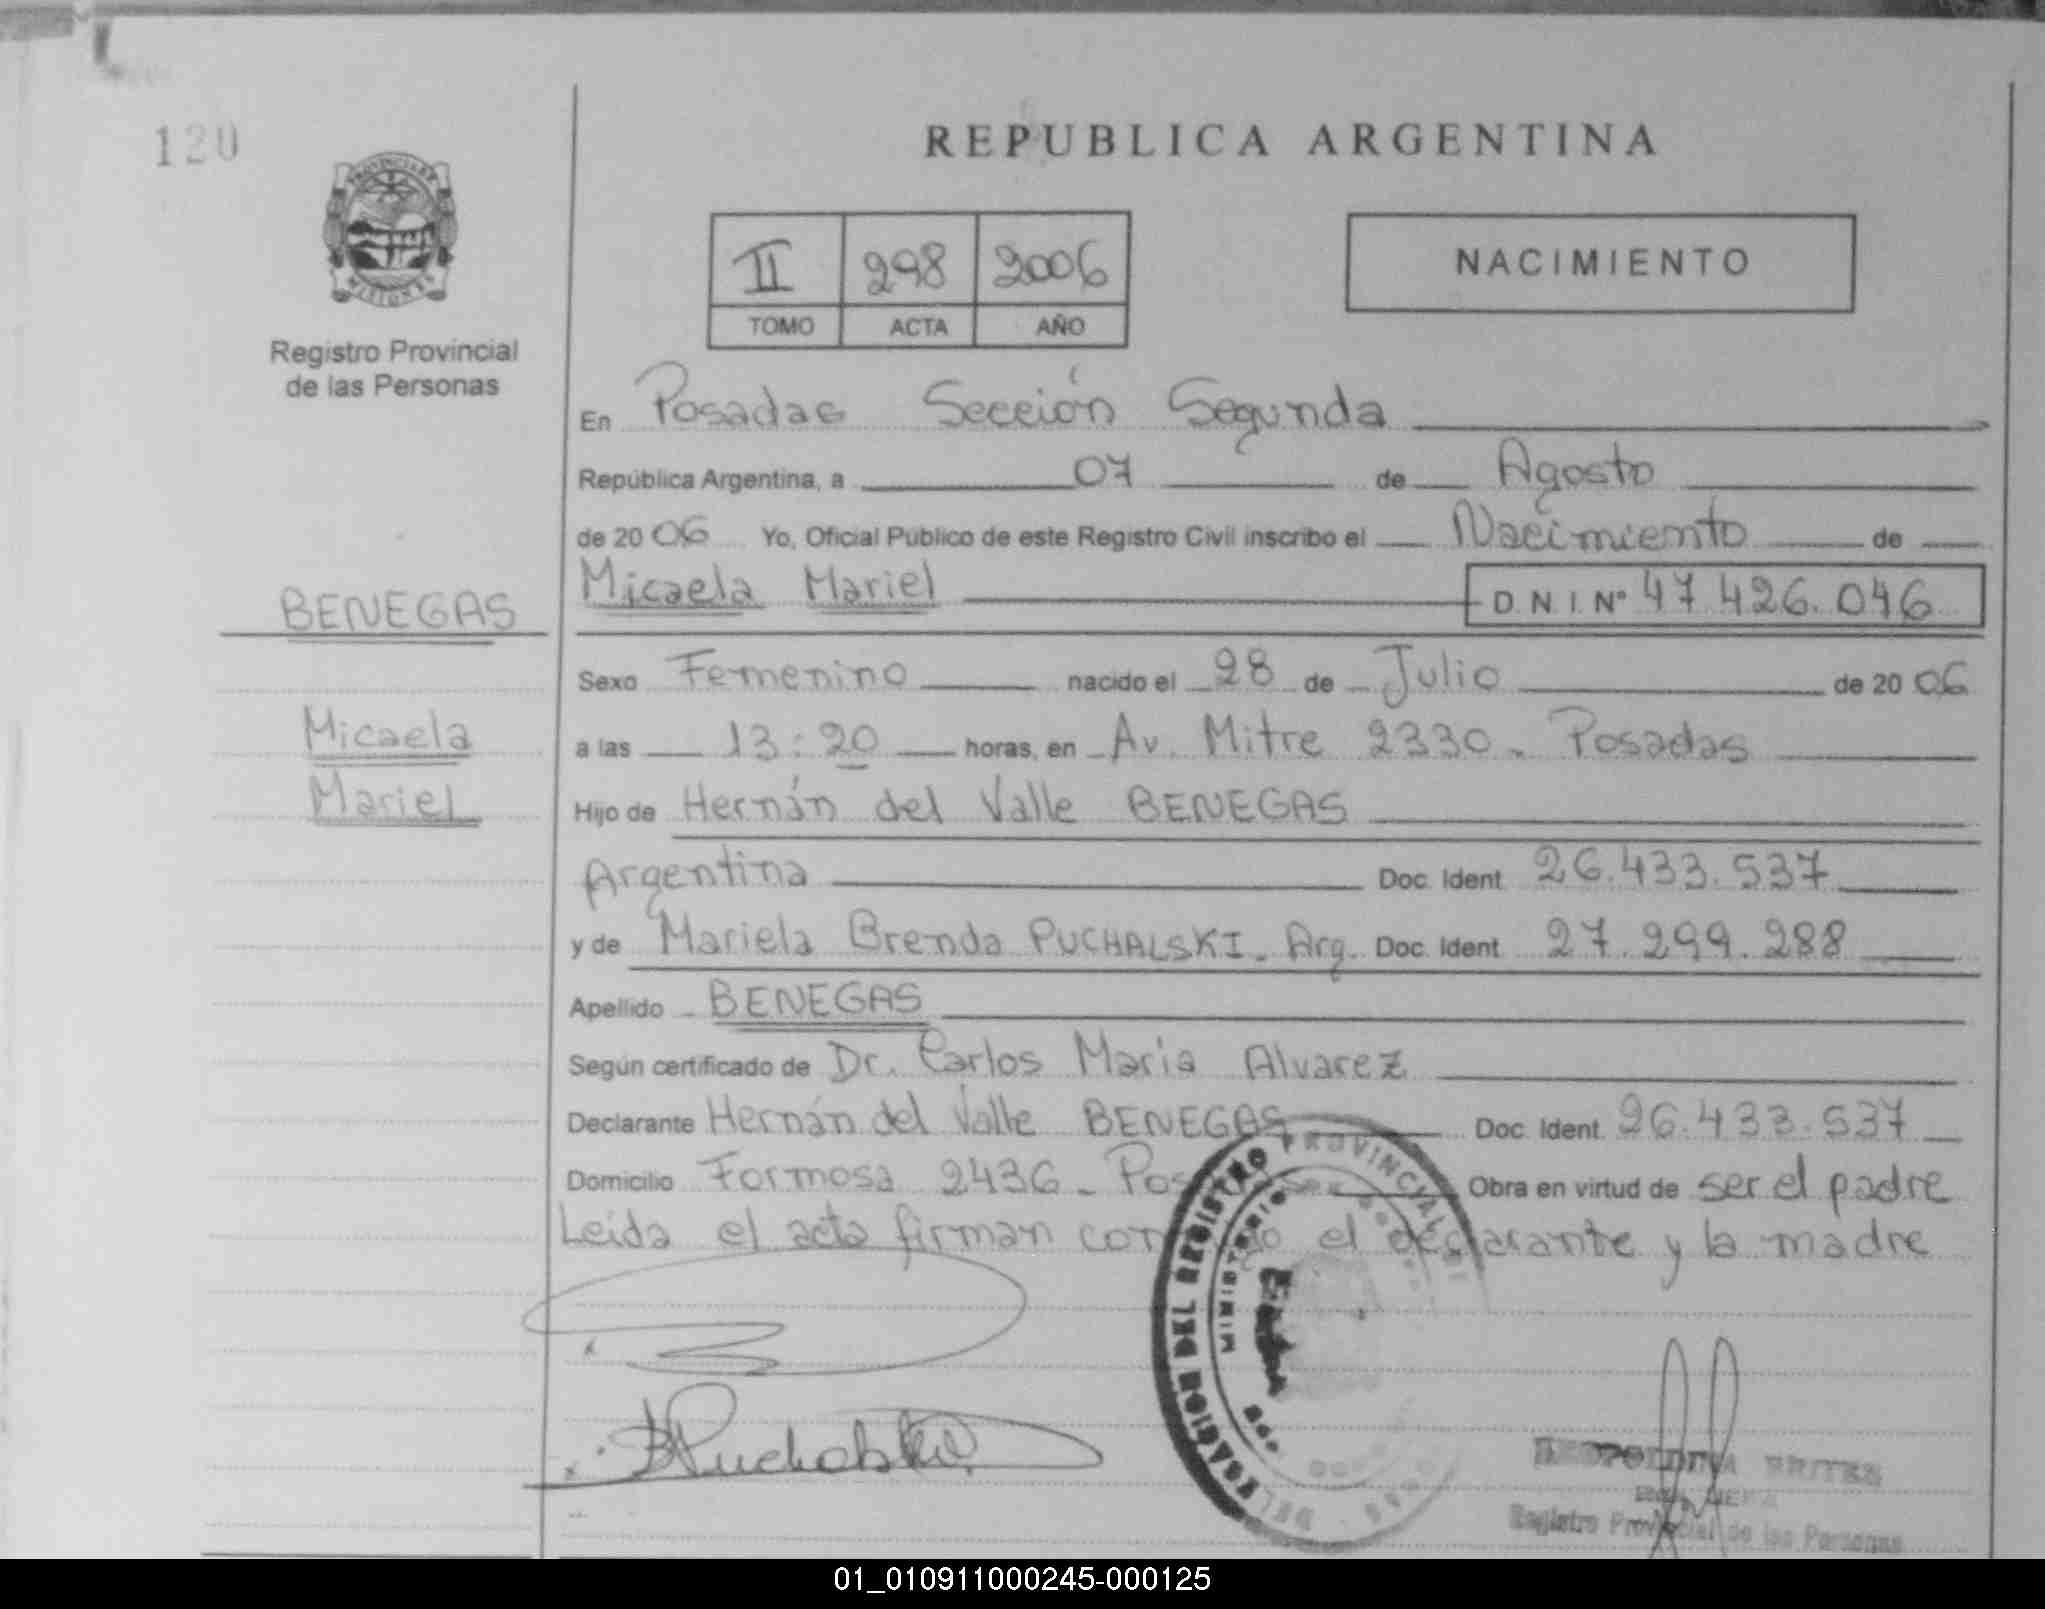 120
REPUBLICA ARGENTINA
PROVINCIA DE
MISIONES
II 298 2006
NACIMIENTO
TOMO ACTA AÑO
Registro Provincial
de las Personas
En Posadas Sección Segunda
República Argentina, a 07 de Agosto
de 20 06 Yo, Oficial Público de este Registro Civil inscribo el Nacimiento de
BENEGAS
Micaela Mariel D.N.I. Nº 47.426.046
Sexo Femenino nacido el 28 de Julio de 20 06
Micaela
a las 13:20 horas, en Av. Mitre 2330 - Posadas
Mariel
Hijo de Hernán del Valle BENEGAS
Argentina Doc. Ident. 26.433.537
y de Mariela Brenda PUCHALSKI - Arg. Doc. Ident. 27.299.288
Apellido BENEGAS
Según certificado de Dr. Carlos María Alvarez
Declarante Hernán del Valle BENEGAS Doc. Ident. 26.433.537
Domicilio Formosa 2436 - Pos Obra en virtud de ser el padre
Leida el acta firman el declarante y la madre
DELEGACION DEL REGISTRO PROVINCIAL DE
MINISTERIO
BPuchalski
LEOPOLDINA BRITES
Registro Provincial de las Personas
01_010911000245-000125